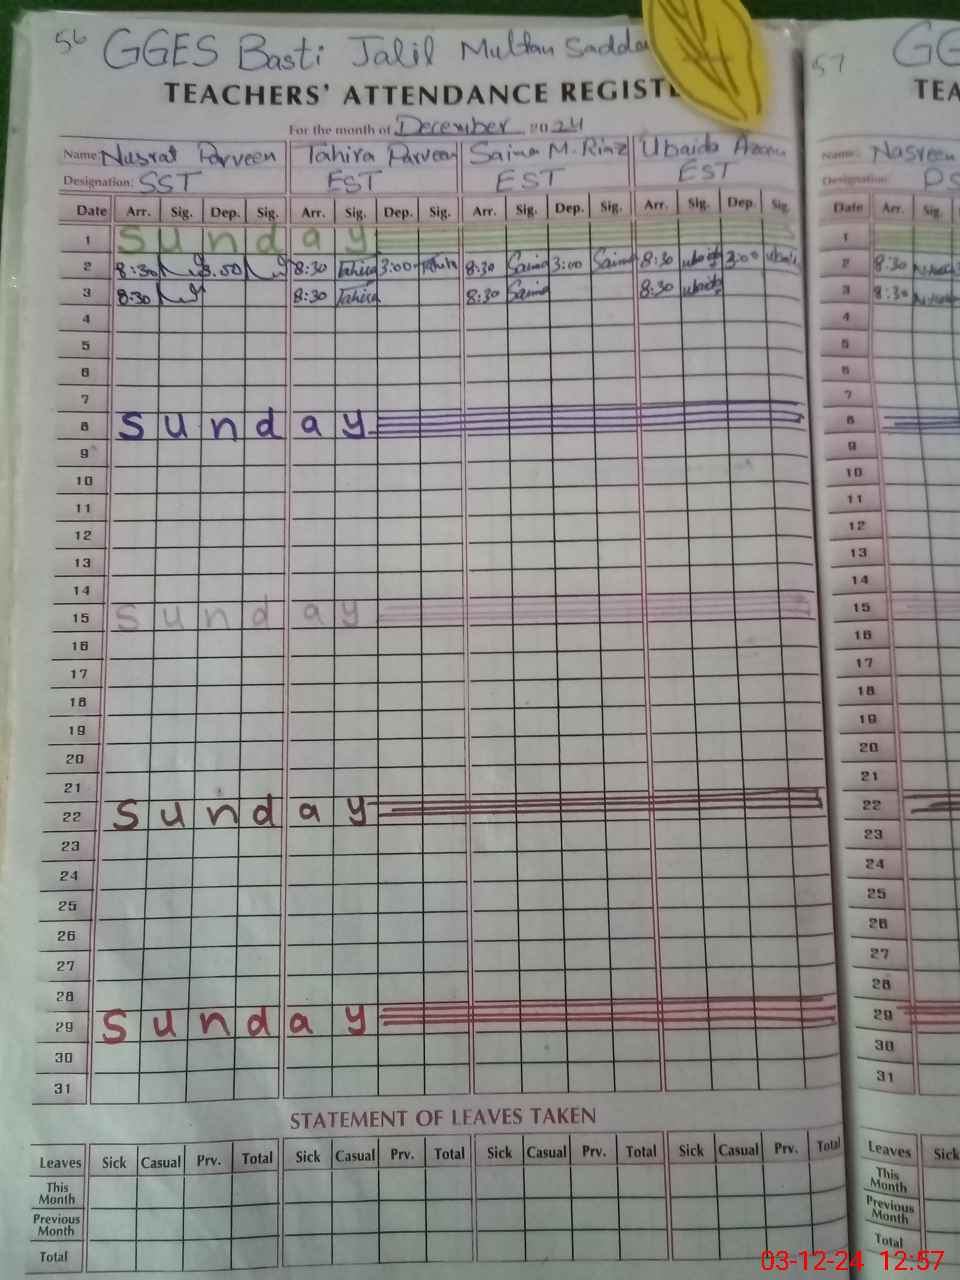 56 GGES Basti Jalil Multan Sadda
TEACHERS' ATTENDANCE REGIST
For the month of December 2024
Name: Nusrat Parveen Tahira Parveen Saima M. Riaz Ubaida Azam
Designation: SST EST EST EST
Date Arr. Sig. Dep. Sig. Arr. Sig. Dep. Sig. Arr. Sig. Dep. Sig. Arr. Sig. Dep. Sig.
1 Sunday
2 8:30 3:00 8:30 Tahira 3:00 Tahira 8:30 Saima 3:00 Saima 8:30 ubaida 3:00 ubaida
3 8:30 8:30 Tahira 8:30 Saima 8:30 ubaida
4
5
6
7
8 Sunday
9
10
11
12
13
14
15 Sunday
16
17
18
19
20
21
22 Sunday
23
24
25
26
27
28
29 Sunday
30
31
STATEMENT OF LEAVES TAKEN
Leaves Sick Casual Prv. Total Sick Casual Prv. Total Sick Casual Prv. Total Sick Casual Prv. Total
This Month
Previous Month
Total
57 GG
TEA
Name: Nasreen
Designation: PS
Date Arr. Sig.
1
2 8:30
3 8:30
4
5
6
7
8
9
10
11
12
13
14
15
16
17
18
19
20
21
22
23
24
25
26
27
28
29
30
31
Leaves Sick
This Month
Previous Month
Total
03-12-24 12:57